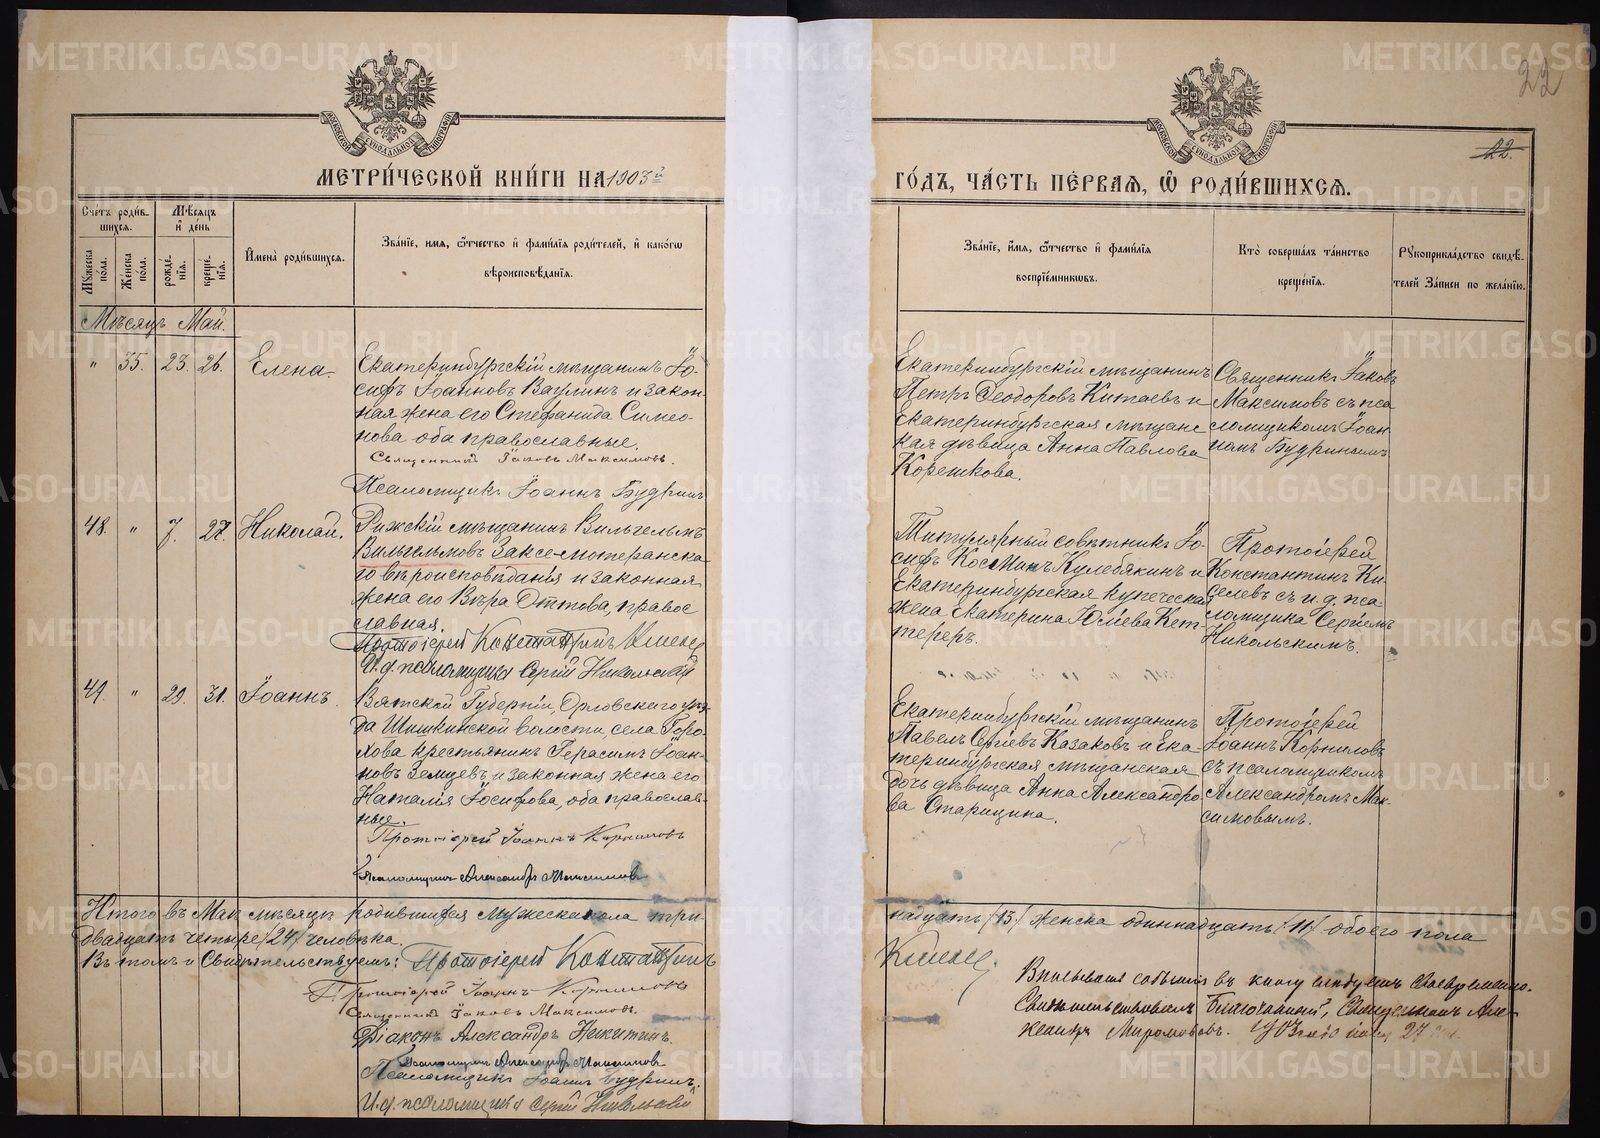 22
22.
МЕТРИ́ЧЕСКОЙ КНИ́ГИ НА 1903й
ГО́ДЪ, ЧА́СТЬ ПЕ́РВАѦ, Ѡ РОДИ́ВШИХСѦ.
Сче́тъ роди́в-
шихсѧ.
Мѣ́сѧцъ
и де́нь
Мꙋжеска пола.
Же́нска по́ла.
рожде́-
нїѧ.
креще́-
нїѧ.
И҆мена̀ роди́вшихсѧ.
Зва́нїе, имѧ, ѻ҆́тчество и҆ фами́лїѧ роди́телей, и҆ како́гѡ
вѣроисповѣ́данїѧ.
Зва́нїе, и҆́мѧ, ѻ҆́тчество и҆ фами́лїѧ
воспрїе́мниковъ.
Кто̀ соверша́лъ та́инство
креще́нїѧ.
Рꙋкоприкла́дство свидѣ́-
телей за́писи по жела́нїю.
Мѣсяцъ Май.
" 35. 23. 26. Елена.
Екатеринбургскій мѣщанинъ Іо-
сифъ Іоанновъ Ваулинъ и закон-
ная жена его Стефанида Симео-
нова оба православные.
Священникъ Іаковъ Максимовъ.
Псаломщикъ Іоаннъ Будринъ
Екатеринбургскій мѣщанинъ
Петръ Ѳеодоровъ Китаевъ и
Екатеринбургская мѣщанс
кая дѣвица Анна Павлова
Корешкова.
Священникъ Іаковъ
Максимовъ съ пса
ломщикомъ Іоан
номъ Будринымъ
48. " 7. 27. Николай.
Рижскій мѣщанинъ Вильгельмъ
Вильгельмовъ Заксе-лютеранска
го вѣроисповѣданія и законная
жена его Вѣра Оттова, правос
лавная.
Протоіерей Константинъ
И.д. псаломщика Сергій Никольскій
Титулярный совѣтникъ Іо-
сифъ Косминъ Кулебякинъ и
Екатеринбургская купеческая
жена Екатерина Юліева Кет-
тереръ.
Протоіерей
Константинъ Ки-
селевъ съ и.д. пса-
ломщика Сергіемъ
Никольскимъ.
49. " 29. 31. Іоаннъ.
Вятской Губерніи, Орловскаго уѣз-
да Шишкинской волости, села Горо-
хова крестьянинъ Герасимъ Іоан-
новъ Земцевъ и законная жена его
Наталія Іосифова, оба православ-
ные.
Протоіерей Іоаннъ Корниловъ
Псаломщикъ Александръ Максимовъ
Екатеринбургскій мѣщанинъ
Павелъ Сергіевъ Казаковъ и Ека-
теринбургская мѣщанская
дочь дѣвица Анна Александро-
ва Старицина.
Протоіерей
Іоаннъ Корниловъ
съ псаломщикомъ
Александромъ Мак-
симовымъ.
Итого въ Маѣ мѣсяцѣ родившихся мужеска пола три-
надцать /13/ женска одиннадцать /11/ обоего пола
двадцать четыре /24/ человѣка.
Въ томъ и свидѣтельствуемъ: Протоіерей Константинъ
Протоіерей Іоаннъ Корниловъ
Священникъ Іаковъ Максимовъ.
Діаконъ Александръ Никитинъ.
Псаломщикъ Александръ Максимовъ
Псаломщикъ Іоаннъ Будринъ.
И.д. псаломщика Сергій Никольскій
Вписывать событія въ книгу слѣдуетъ своевременно.
Свидѣтельствовалъ Благочинный, Священникъ Але-
ксандръ